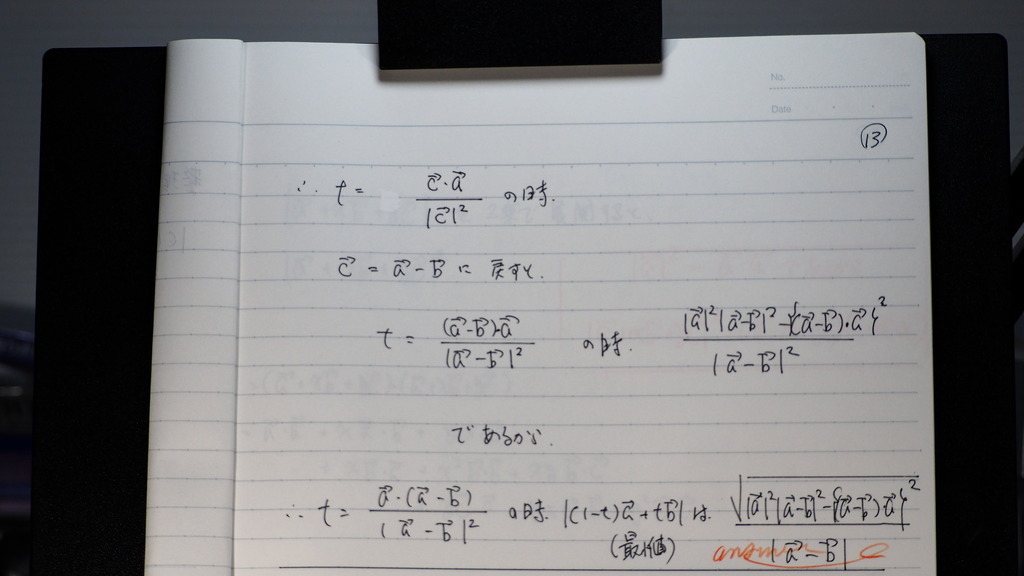 No.
Date
⑬
∴ t = \frac{\vec{c}·\vec{a}}{|\vec{c}|^2} の時.
\vec{c} = \vec{a} - \vec{b} に 戻すと.
t = \frac{(\vec{a}-\vec{b})·\vec{a}}{|\vec{a}-\vec{b}|^2} の時. \frac{|\vec{a}|^2|\vec{a}-\vec{b}|^2-\{(\vec{a}-\vec{b})·\vec{a}\}^2}{|\vec{a}-\vec{b}|^2}
であるから.
∴ t = \frac{\vec{a}·(\vec{a}-\vec{b})}{|\vec{a}-\vec{b}|^2} の時. |(1-t)\vec{a}+t\vec{b}| は \frac{\sqrt{|\vec{a}|^2|\vec{a}-\vec{b}|^2-\{(\vec{a}-\vec{b})\vec{a}\}^2}}{|\vec{a}-\vec{b}|}
(最小値) answer